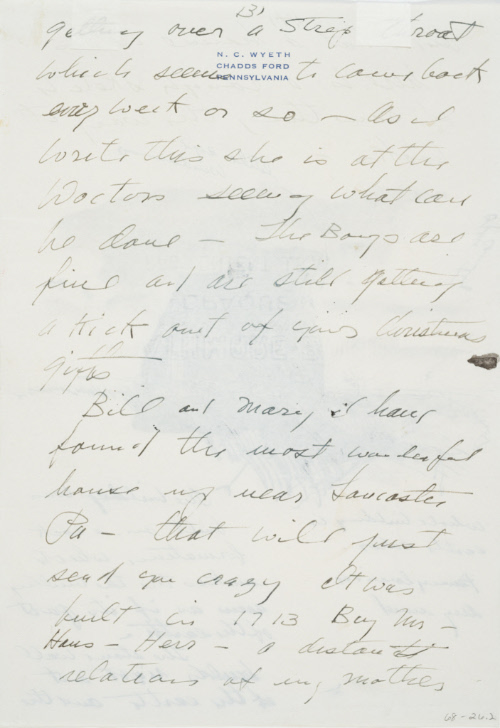 (3)
getting over a Strep Throat
N. C. WYETH
CHADDS FORD
PENNSYLVANIA
which seems to come back
every week or so – As I
write this she is at the
Doctors seeing what can
be done – The Boys are
fine and are still getting
a kick out of your Christmas
gifts
Bill and Mary & I have
found the most wonderful
house up near Lancaster
Pa – that will just
send you crazy It was
built in 1713 By Mr –
Hans – Herr – a distant
relations of my mother
68-26.2